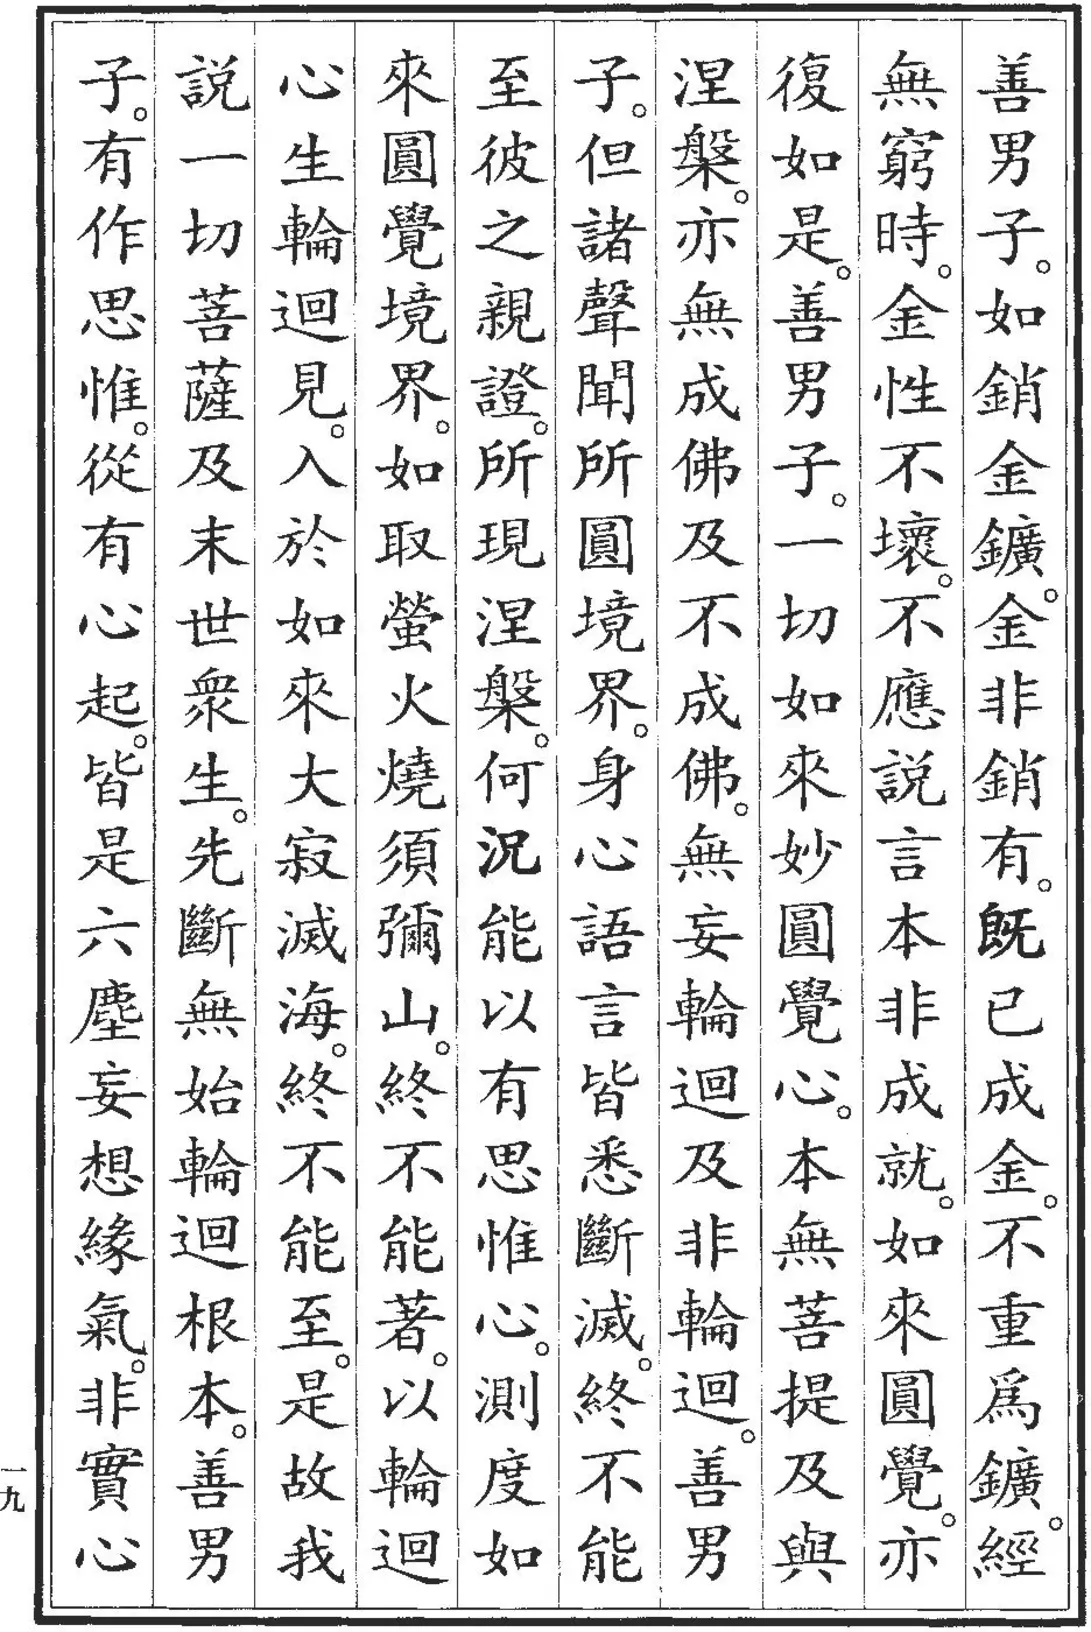 善男子。如銷金鑛。金非銷有。既已成金。不重為鑛。經
無窮時。金性不壞。不應說言本非成就。如來圓覺。亦
復如是。善男子。一切如來妙圓覺心。本無菩提及與
涅槃。亦無成佛及不成佛。無妄輪迴及非輪迴。善男
子。但諸聲聞所圓境界。身心語言皆悉斷滅。終不能
至彼之親證。所現涅槃。何況能以有思惟心。測度如
來圓覺境界。如取螢火燒須彌山。終不能著。以輪迴
心生輪迴見。入於如來大寂滅海。終不能至。是故我
說一切菩薩及末世眾生。先斷無始輪迴根本。善男
子。有作思惟。從有心起。皆是六塵妄想緣氣。非實心
一九